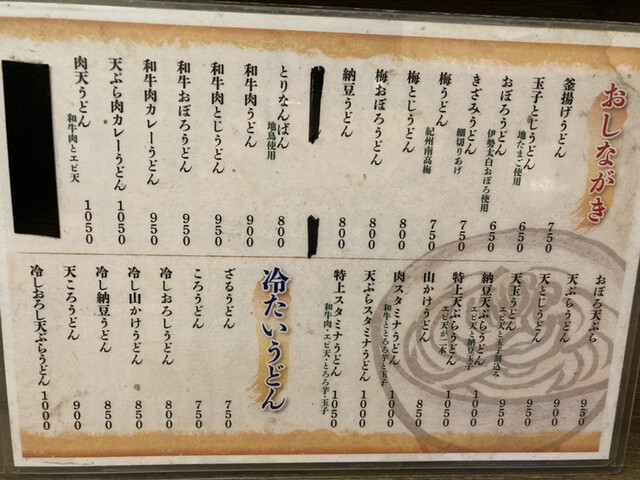 おしながき
釜揚げうどん 750
玉子とじうどん 650
地たまご使用
おぼろうどん 650
伊勢太白おぼろ使用
きざみうどん 750
細切りあげ
梅うどん 750
紀州南高梅
梅とじうどん 800
梅おぼろうどん 800
納豆うどん 800
とりなんばん 800
地鳥使用
和牛肉うどん 900
和牛肉とじうどん 950
和牛おぼろうどん 950
和牛肉カレーうどん 950
天ぷら肉カレーうどん 1050
肉天うどん 1050
和牛肉とエビ天
おぼろ天ぷら 950
天ぷらうどん 900
天とじうどん 950
天玉うどん 950
エビ天と玉子割込み
納豆天ぷらうどん 1000
エビ天と納豆玉子
特上天ぷらうどん 1050
エビ天が二本
山かけうどん 850
肉スタミナうどん 1000
和牛ととろろ芋と玉子
天ぷらスタミナうどん 1000
特上スタミナうどん 1050
和牛肉・エビ天・とろろ芋・玉子
冷たいうどん
ざるうどん 750
ころうどん 750
冷しおろしうどん 800
冷し山かけうどん 850
冷し納豆うどん 850
天ころうどん 900
冷しおろし天ぷらうどん 1000